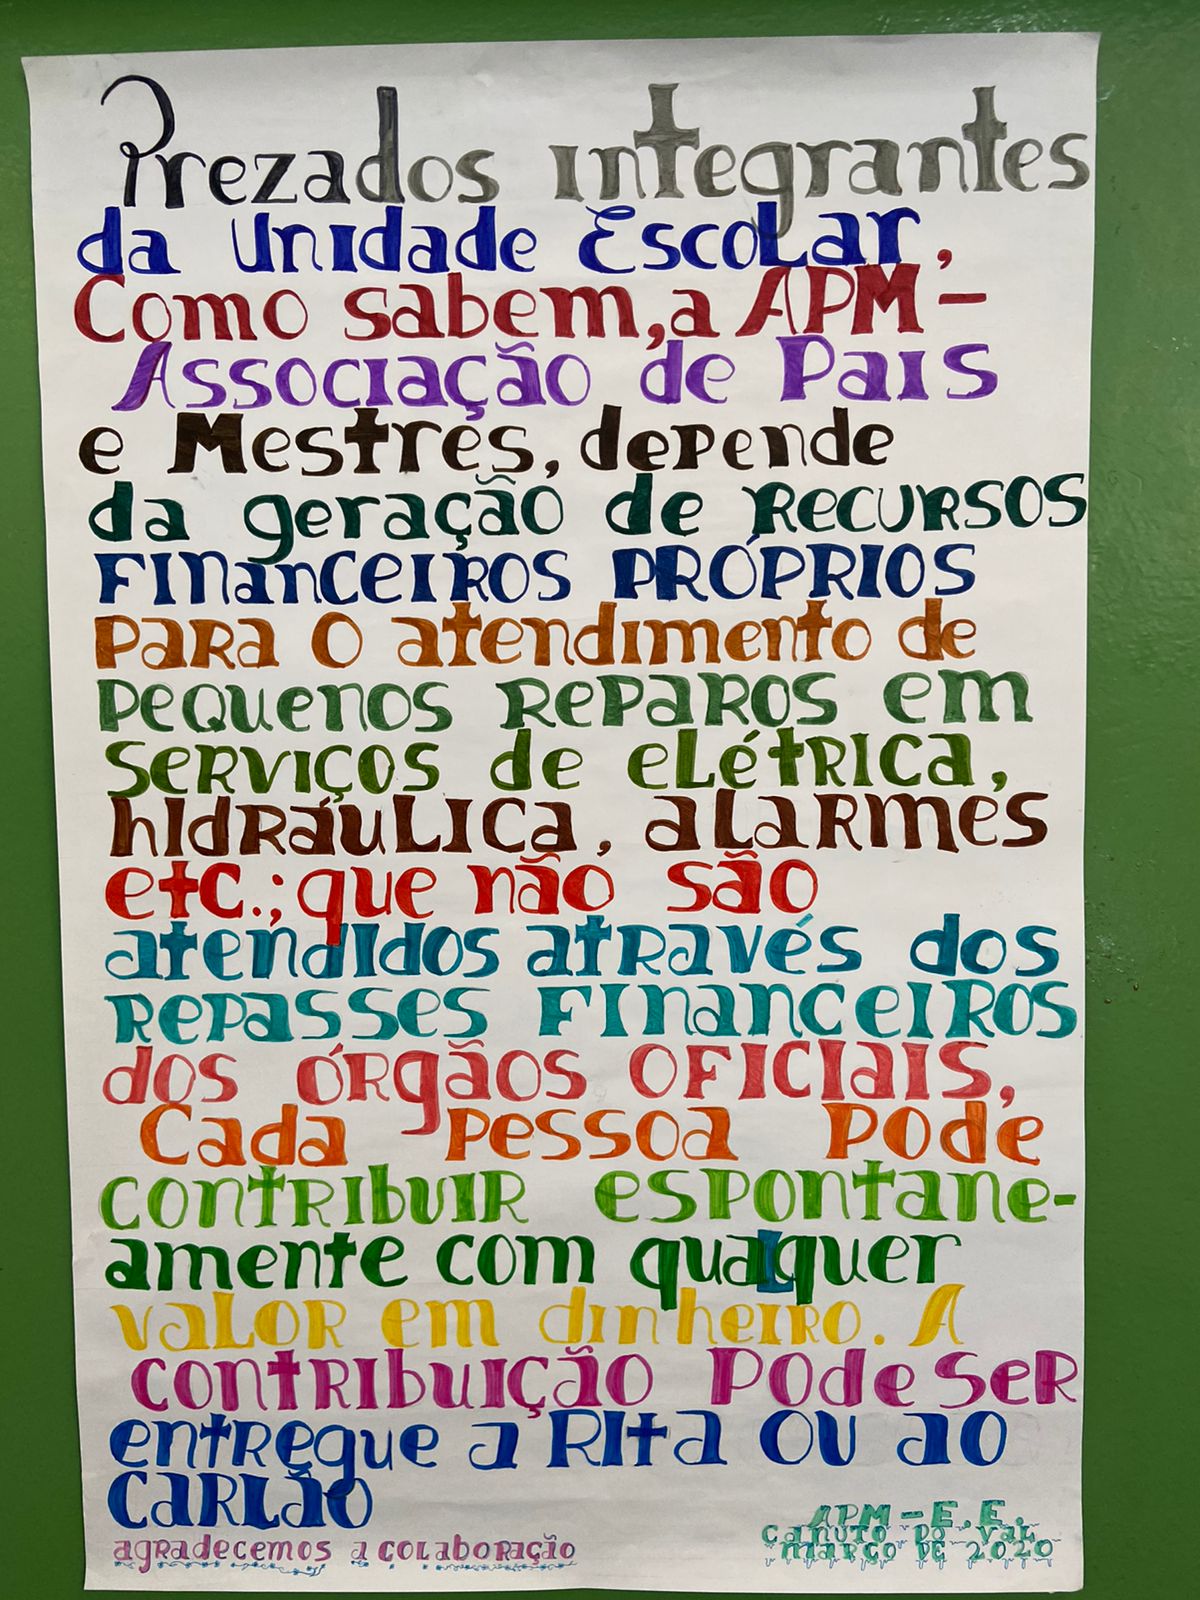 Prezados integrantes
da Unidade Escolar,
Como sabem, a APM -
Associação de Pais
e Mestres, depende
da geração de recursos
financeiros próprios
para o atendimento de
pequenos reparos em
serviços de elétrica,
hidráulica, alarmes
etc.; que não são
atendidos através dos
repasses financeiros
dos órgãos oficiais,
Cada pessoa pode
contribuir espontane-
amente com qualquer
valor em dinheiro. A
contribuição pode ser
entregue a Rita ou ao
Carlão
agradecemos a colaboração
APM - E. E.
Canuto do Val
março de 2020